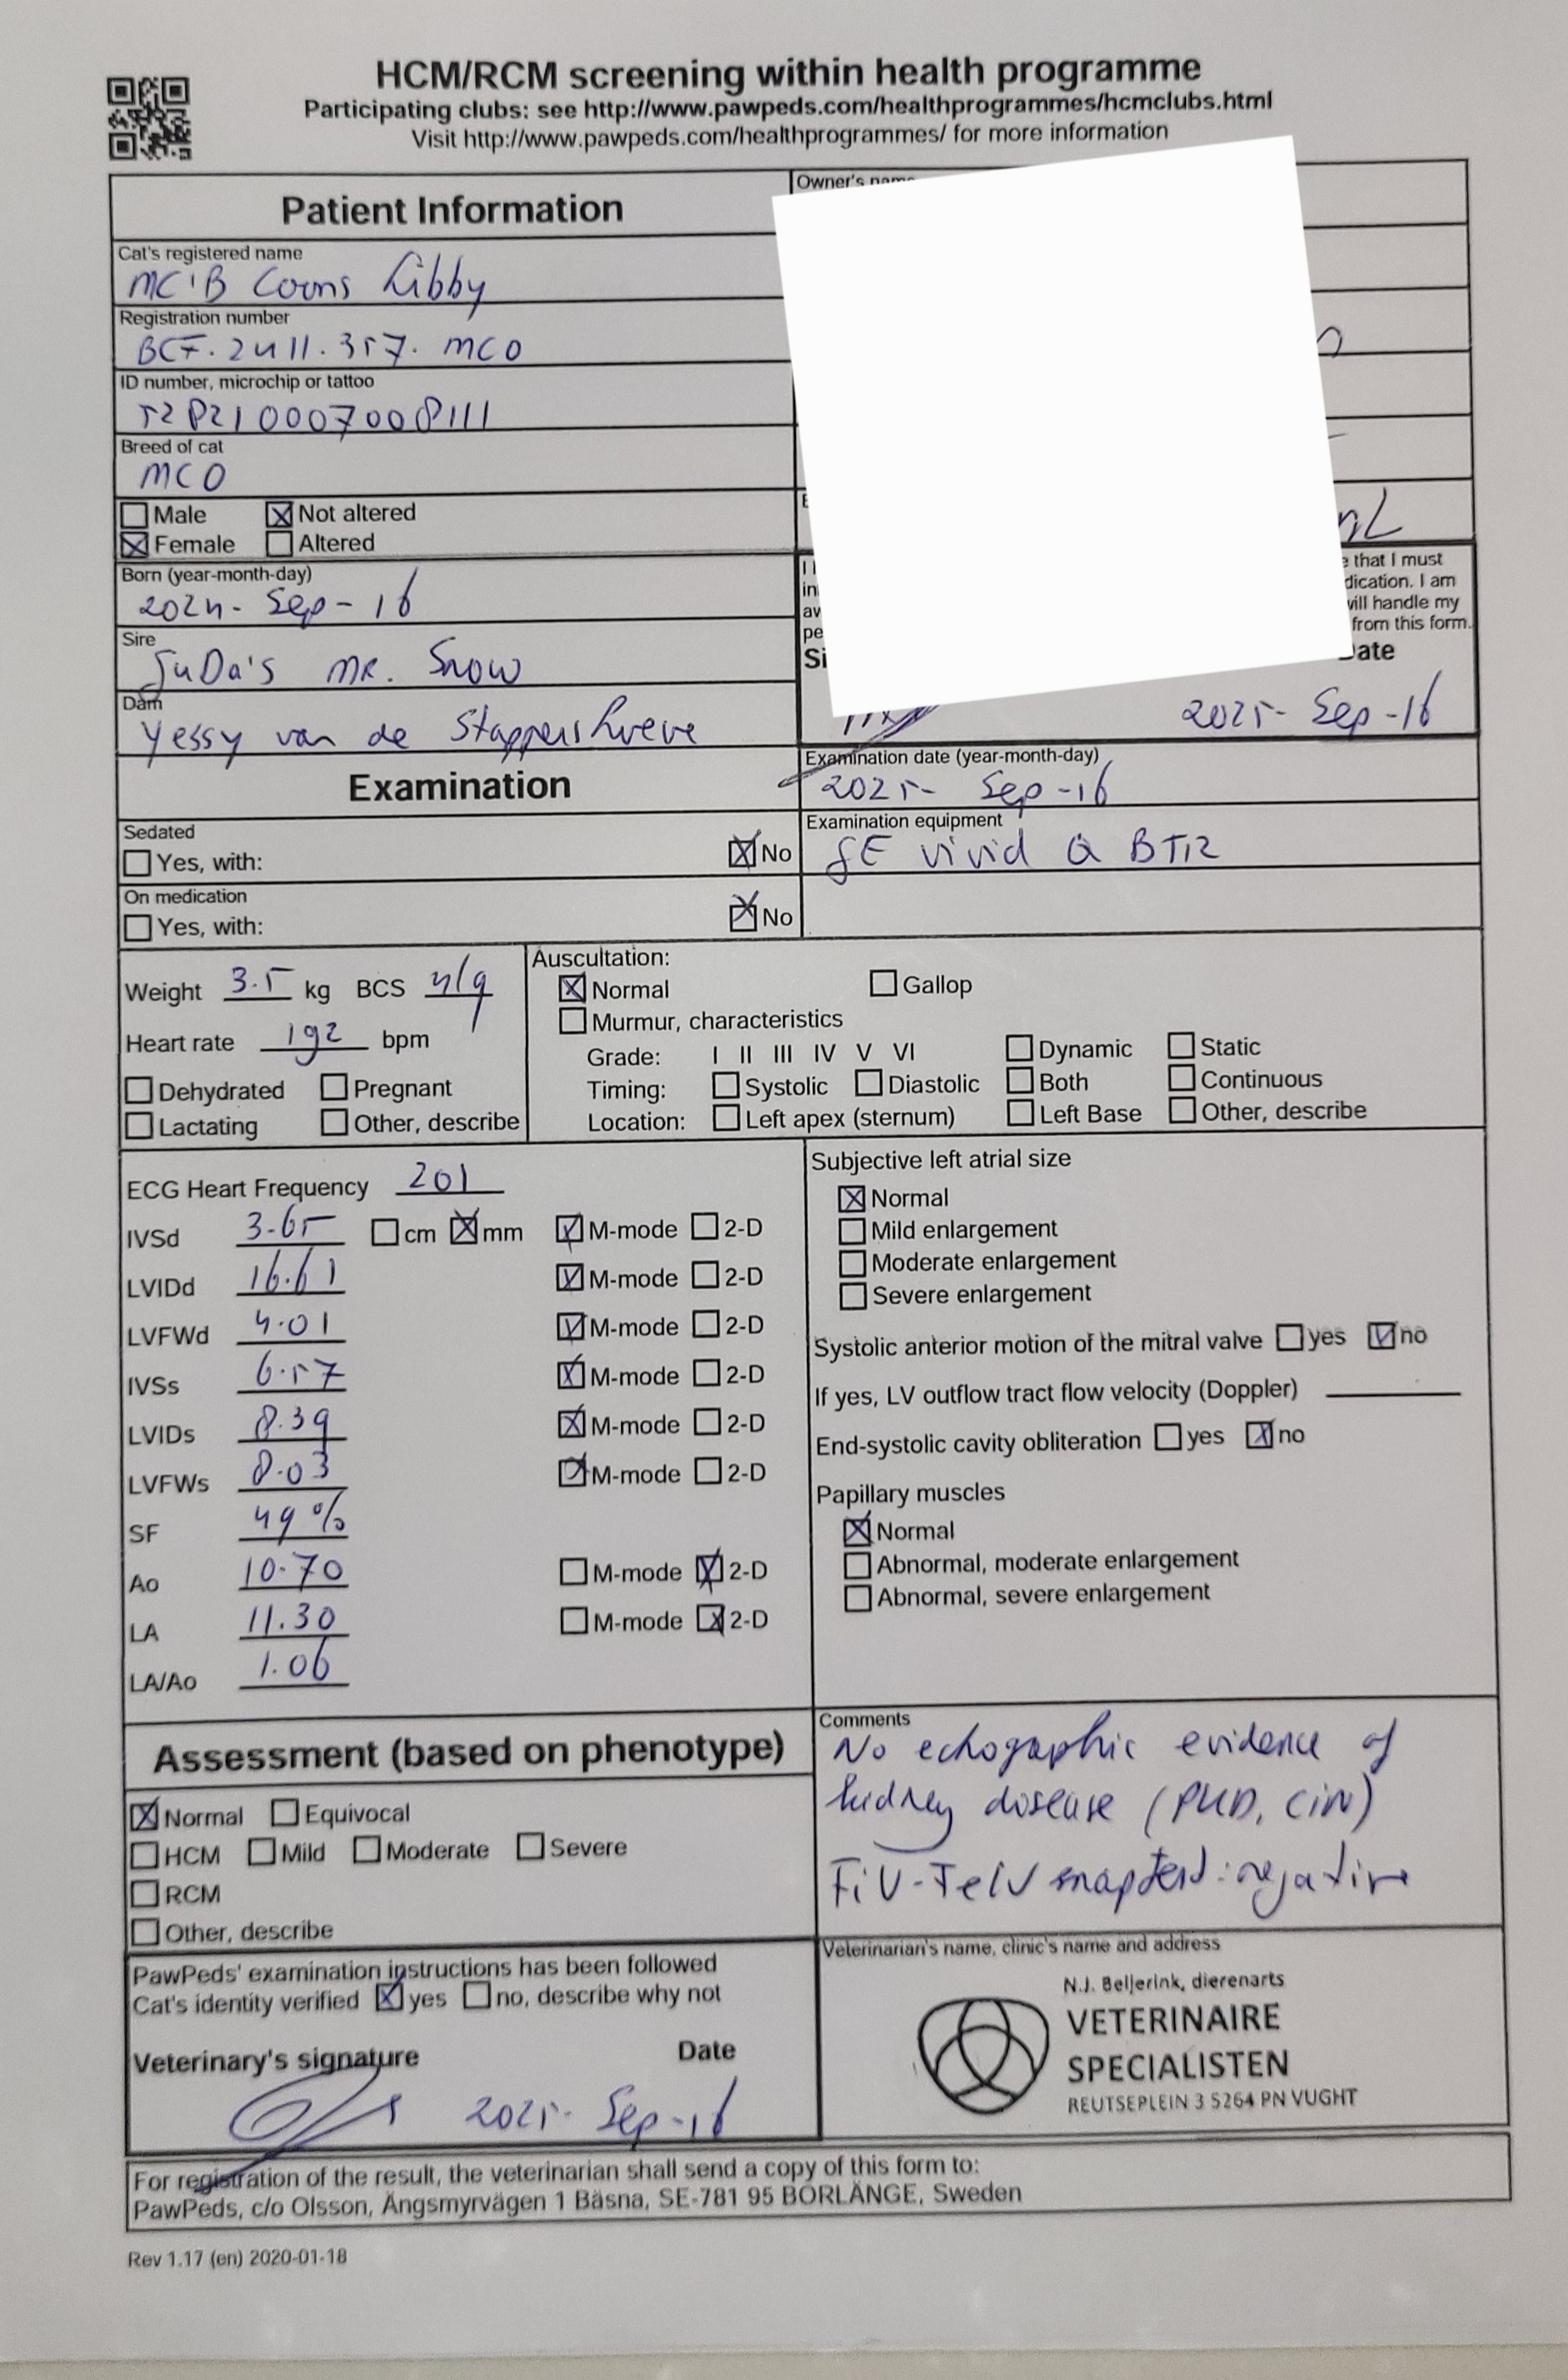 HCM/RCM screening within health programme
Participating clubs: see http://www.pawpeds.com/healthprogrammes/hcmclubs.html
Visit http://www.pawpeds.com/healthprogrammes/ for more information
Patient Information
Owner's name
Cat's registered name
MC'B Coons Libby
Registration number
BCF. 2411. 357. MCO
ID number, microchip or tattoo
528210007008111
Breed of cat
MCO
Male Not altered
Female Altered
that I must
dication. I am
will handle my
from this form.
Born (year-month-day)
2024-Sep-16
Sire
JuDa's MR. Snow
Dam
Yessy van de
Date
2025-Sep-16
Examination
Examination date (year-month-day)
2025-Sep-16
Sedated
Yes, with: No
Examination equipment
GE vivid Q BT12
On medication
Yes, with: No
Weight 3.5 kg BCS 4/9
Heart rate 192 bpm
Dehydrated Pregnant
Lactating Other, describe
Auscultation:
Normal Gallop
Murmur, characteristics
Grade: I II III IV V VI Dynamic Static
Timing: Systolic Diastolic Both Continuous
Location: Left apex (sternum) Left Base Other, describe
ECG Heart Frequency 201
IVSd 3.65 cm mm M-mode 2-D
LVIDd 16.61 M-mode 2-D
LVFWd 4.01 M-mode 2-D
IVSs 6.57 M-mode 2-D
LVIDs 8.39 M-mode 2-D
LVFWs 8.03 M-mode 2-D
SF 49%
Ao 10.70 M-mode 2-D
LA 11.30 M-mode 2-D
LA/Ao 1.06
Subjective left atrial size
Normal
Mild enlargement
Moderate enlargement
Severe enlargement
Systolic anterior motion of the mitral valve yes no
If yes, LV outflow tract flow velocity (Doppler)
End-systolic cavity obliteration yes no
Papillary muscles
Normal
Abnormal, moderate enlargement
Abnormal, severe enlargement
Assessment (based on phenotype)
Normal Equivocal
HCM Mild Moderate Severe
RCM
Other, describe
Comments
No echographic evidence of
kidney disease (PKD, CIN)
FiV-FelV snaptest: negative
PawPeds' examination instructions has been followed
Cat's identity verified yes no, describe why not
Veterinary's signature Date
2025-Sep-16
Veterinarian's name, clinic's name and address
N.J. Beijerink, dierenarts
VETERINAIRE
SPECIALISTEN
REUTSEPLEIN 3 5264 PN VUGHT
For registration of the result, the veterinarian shall send a copy of this form to:
PawPeds, c/o Olsson, Ängsmyrvägen 1 Bäsna, SE-781 95 BORLÄNGE, Sweden
Rev 1.17 (en) 2020-01-18